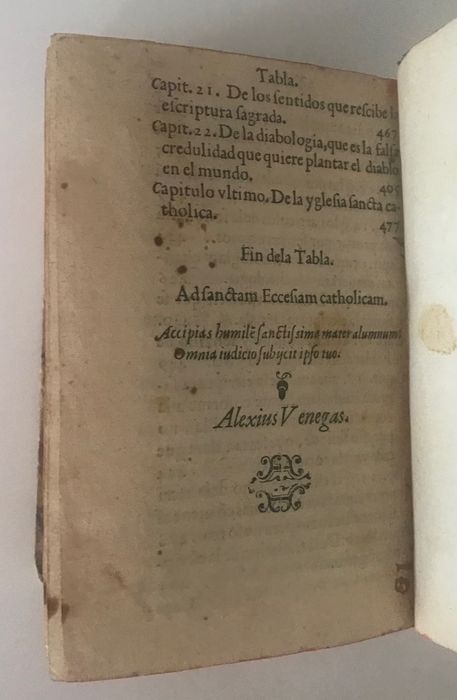 Tabla.
Capit. 21. De los ſentidos que reſcibe la
eſcriptura ſagrada. 467
Capit. 22. De la diabologia, que es la falſa
credulidad que quiere plantar el diablo
en el mundo. 409
Capitulo vltimo. De la ygleſia ſancta ca-
tholica. 477
Fin dela Tabla.
Ad ſanctam Eccesiam catholicam.
Accipias humilẽ ſanctiſsima mater alumnum:
Omnia iudicio ſubijcit ipſo tuo.
Alexius Venegas.